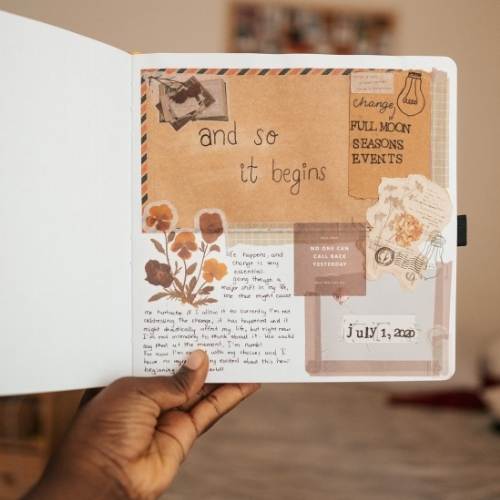 and so
it begins
change
of
FULL MOON
SEASONS
EVENTS
NO ONE CAN
CALL BACK
YESTERDAY
july 1, 2020
life happens, and
change is very
essential.
going through a
major shift in my life,
one that might cause
me heartache if I allow it to. Currently I'm not
celebrating the change, it has happened and it
might drastically affect my life, but right now
I'm not intending to think about it. You could
say that at the moment, I'm numb!
For now I'm with my choices and I
have no excited about this new
beginning